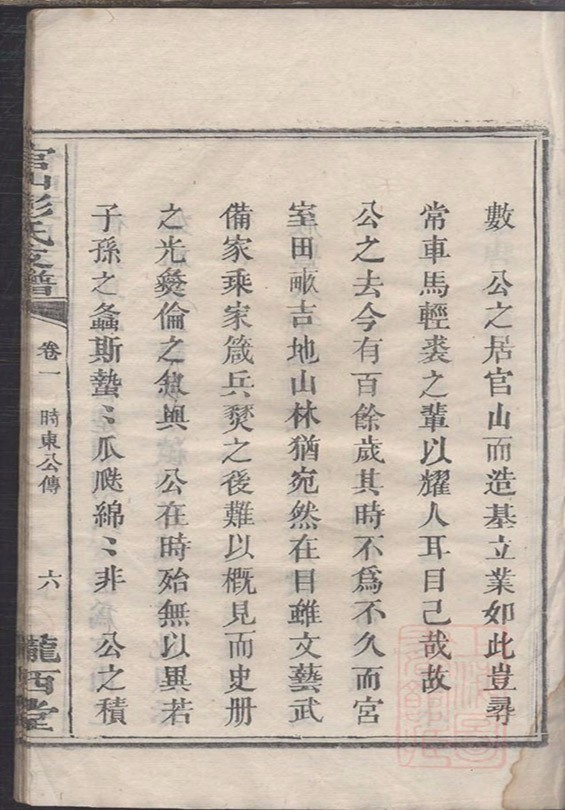 數　公之居官山而造基立業如此豈尋
常車馬輕裘之輩以耀人耳目已哉故
公之去今有百餘歲其時不爲不久而宮
室田畝吉地山林猶宛然在目雖文藝武
備家乘家箴兵燹之後難以概見而史册
之光彝倫之敘與　公在時始無以異若
子孫之螽斯蟄〻瓜瓞綿〻非　公之積
官山彭氏支譜
卷一
時東公傳
六
隴西堂